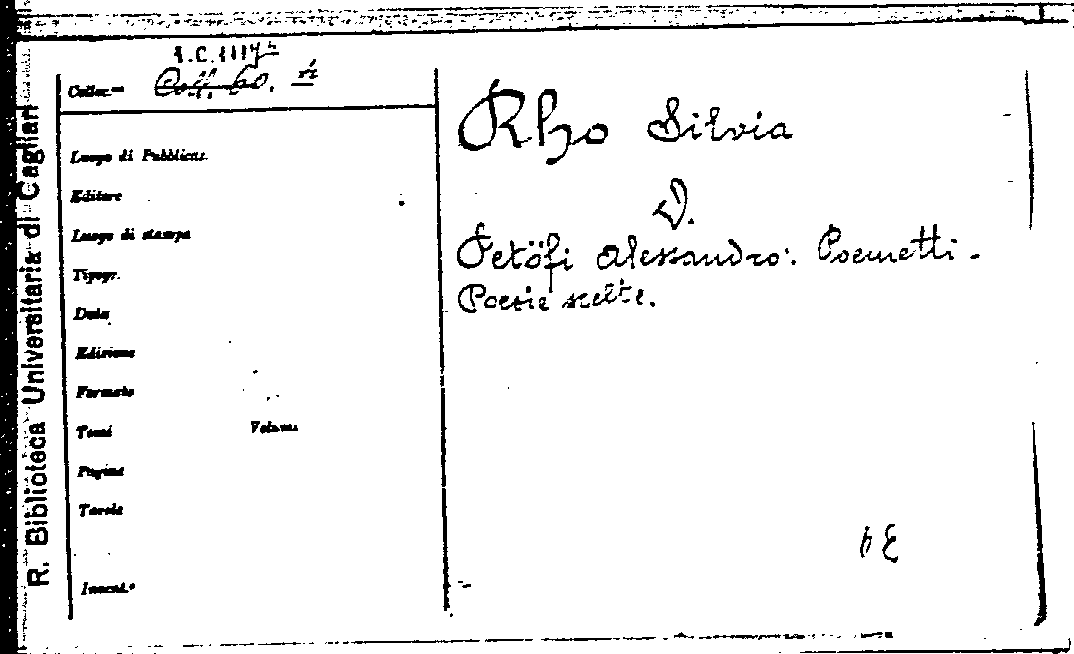 R. Biblioteca Universitaria di Cagliari
Colloc.
Coll. 60.
Luogo di Pubblicaz.
Editore
Luogo di stampa
Tipogr.
Data
Edizione
Formato
Tomi Volumi
Pagine
Tavole
Invent.°
Rho Silvia
V.
Petöfi Alessandro: Poemetti -
Poesie scelte.